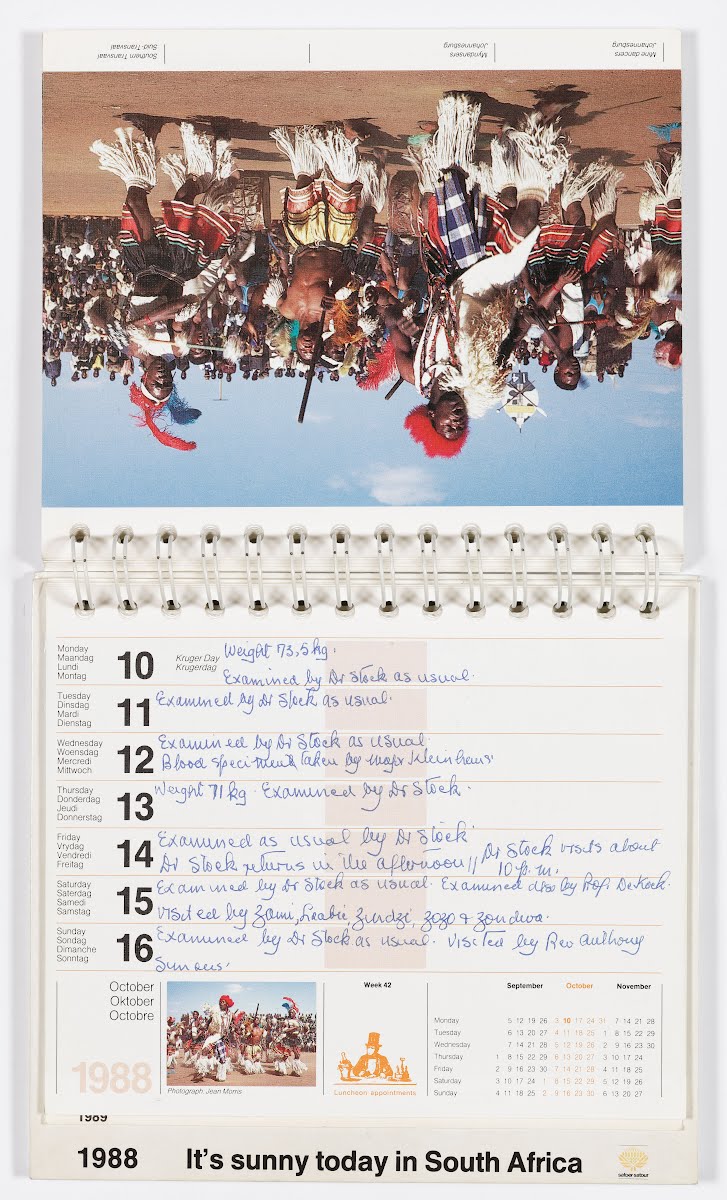 Mine dancers
Johannesburg
Myndansers
Johannesburg
Southern Transvaal
Suid-Transvaal
Monday
Maandag
Lundi
Montag
10
Kruger Day
Krugerdag
Weight 73,5 kg.
Examined by Dr Stock as usual.
Tuesday
Dinsdag
Mardi
Dienstag
11
Examined by Dr Stock as usual.
Wednesday
Woensdag
Mercredi
Mittwoch
12
Examined by Dr Stock as usual.
Blood specimens taken by major Kleinhans.
Thursday
Donderdag
Jeudi
Donnerstag
13
Weight 71 kg. Examined by Dr Stock.
Friday
Vrydag
Vendredi
Freitag
14
Examined as usual by Dr Stock.
Dr Stock returns in the afternoon // Dr Stock visits about
10 p.m.
Saturday
Saterdag
Samedi
Samstag
15
Examined by Dr Stock as usual. Examined also by Prof. De Kock.
Visited by Zami, Zindzi, Zozo + Zondwa.
Sunday
Sondag
Dimanche
Sonntag
16
Examined by Dr Stock as usual. Visited by Rev Anthony
October
Oktober
Octobre
1988
Photograph: Jean Morris
Week 42
Luncheon appointments
September October November
Monday 5 12 19 26 3 10 17 24 31 7 14 21 28
Tuesday 6 13 20 27 4 11 18 25 1 8 15 22 29
Wednesday 7 14 21 28 5 12 19 26 2 9 16 23 30
Thursday 1 8 15 22 29 6 13 20 27 3 10 17 24
Friday 2 9 16 23 30 7 14 21 28 4 11 18 25
Saturday 3 10 17 24 1 8 15 22 29 5 12 19 26
Sunday 4 11 18 25 2 9 16 23 30 6 13 20 27
1989
1988 It's sunny today in South Africa
satoer satour